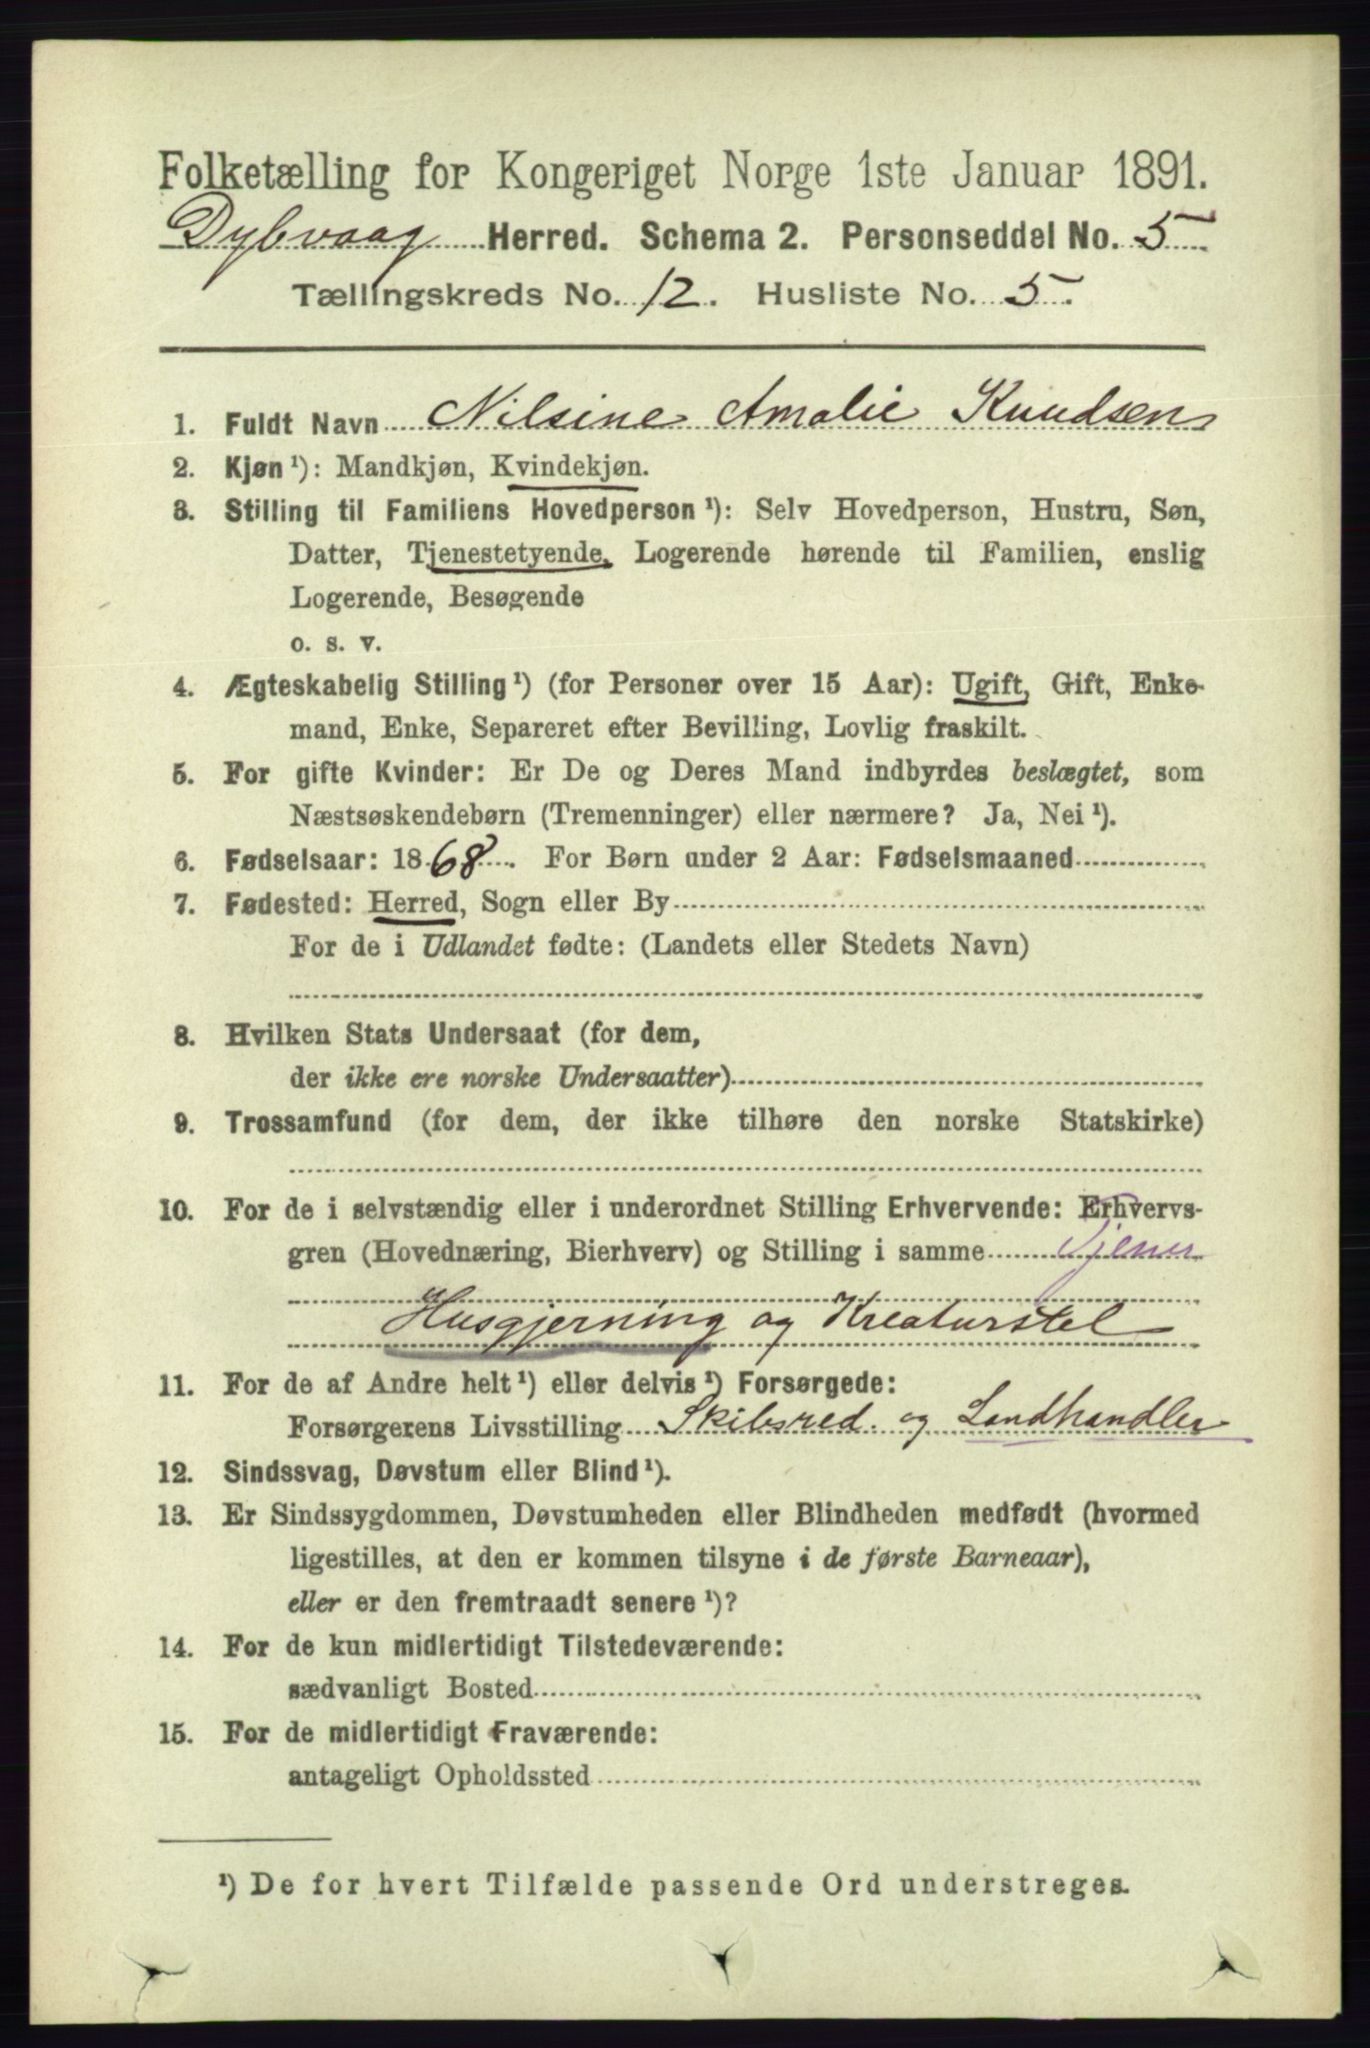 Folketælling for Kongeriget Norge 1ste Januar 1891.
Dybvaag Herred. Schema 2. Personseddel No. 5
Tællingskreds No. 12. Husliste No. 5.
1. Fuldt Navn Nilsine Amalie Knudsen
2. Kjøn ¹): Mandkjøn, Kvindekjøn.
3. Stilling til Familiens Hovedperson ¹): Selv Hovedperson, Hustru, Søn,
Datter, Tjenestetyende, Logerende hørende til Familien, enslig
Logerende, Besøgende
o. s. v.
4. Ægteskabelig Stilling ¹) (for Personer over 15 Aar): Ugift, Gift, Enke-
mand, Enke, Separeret efter Bevilling, Lovlig fraskilt.
5. For gifte Kvinder: Er De og Deres Mand indbyrdes beslægtet, som
Næstsøskendebørn (Tremenninger) eller nærmere? Ja, Nei ¹).
6. Fødselsaar: 1868. For Børn under 2 Aar: Fødselsmaaned
7. Fødested: Herred, Sogn eller By
For de i Udlandet fødte: (Landets eller Stedets Navn)
8. Hvilken Stats Undersaat (for dem,
der ikke ere norske Undersaatter)
9. Trossamfund (for dem, der ikke tilhøre den norske Statskirke)
10. For de i selvstændig eller i underordnet Stilling Erhvervende: Erhvervs-
gren (Hovednæring, Bierhverv) og Stilling i samme Tjener
Husgjerning og Kreaturstel
11. For de af Andre helt ¹) eller delvis ¹) Forsørgede:
Forsørgerens Livsstilling Skibsred. og Landhandler
12. Sindssvag, Døvstum eller Blind ¹).
13. Er Sindssygdommen, Døvstumheden eller Blindheden medfødt (hvormed
ligestilles, at den er kommen tilsyne i de første Barneaar),
eller er den fremtraadt senere ¹)?
14. For de kun midlertidigt Tilstedeværende:
sædvanligt Bosted
15. For de midlertidigt Fraværende:
antageligt Opholdssted
¹) De for hvert Tilfælde passende Ord understreges.